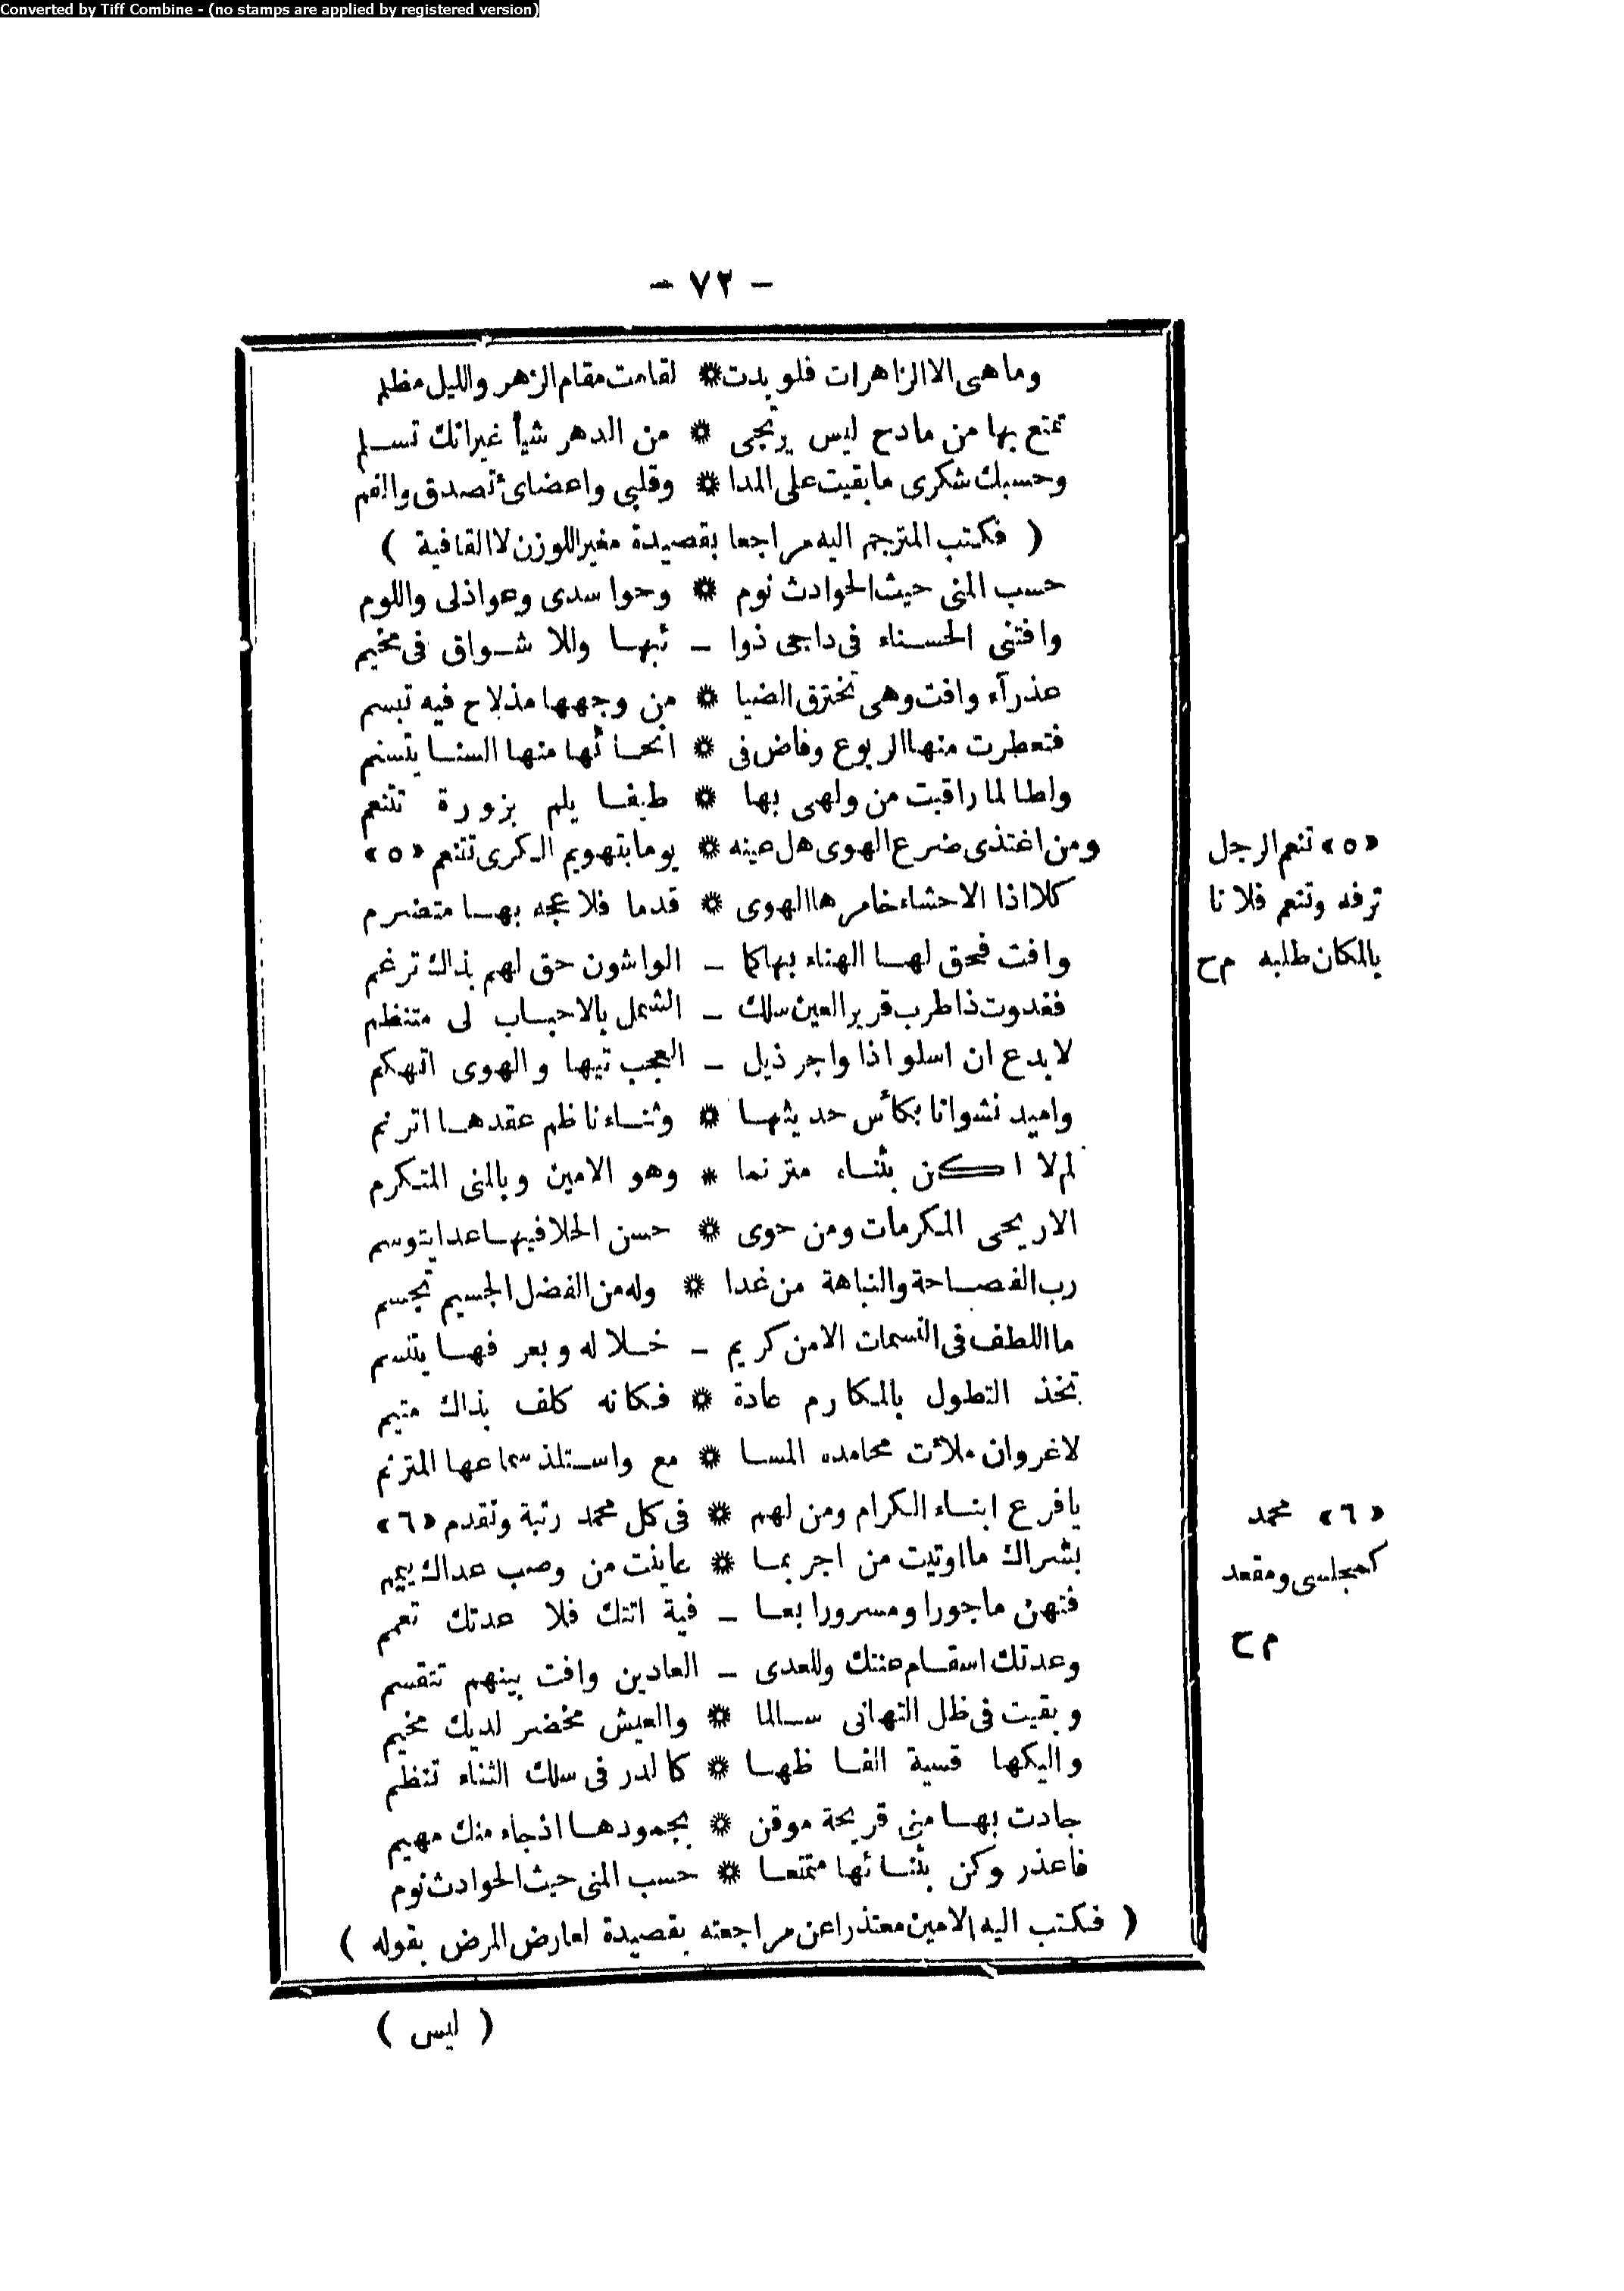 Converted by Tiff Combine - (no stamps are applied by registered version)
- ٧٢ -
وما هى الا الزاهرات فلو بدت * لقامت مقام الزهر والليل مظلم
تمتع بها من مادح ليس يرتجى * من الدهر شيأ غير انك تسلم
وحسبك شكرى ما بقيت على المدا * وقلبى واعضائ تصدق والفم
( فكتب المترجم اليه مراجعا بقصيدة مغير اللوزن لا القافية )
حسب المنى حيث الحوادث نوم * وحوا سدى وعواذلى واللوم
وافتنى الحسناء فى داجى ذوا - ئبها وللا شواق فى مخيم
عذرآء وافت وهى تخترق الضيا * من وجهها مذلاح فيه تبسم
فتعطرت منها الربوع وفاض فى * انحائها منها السنا يتسنم
ولطا لما راقبت من ولهى بها * طيفا يلم بزورة تتنعم
ومن اغتذى ضرع الهوى هل عينه * يوما بتهويم الكرى تتنعم «٥»
كلا اذا الاحشاء خامرها الهوى * قدما فلا عجه بها متضرم
وافت فحق لها الهناء بها كما - الواشون حق لهم بذاك ترغم
فغدوت ذا طرب قرير العين سلك - الشمل بالاحباب لى متنظم
لا بدع ان اسلو اذا واجر ذيل - العجب تيها والهوى اتهكم
واميد نشوانا بكأس حديثها * وثناء ناظم عقدها اترنم
لم لا اكن بثناء مترنما * وهو الامين وبالمنى المتكرم
الاريحى المكرمات ومن حوى * حسن الحلا فيها عدا يتوسم
رب الفصاحة والنباهة من غدا * وله من الفضل الجسيم تجسم
ما اللطف فى النسمات الا من كريم - خلاله وبعر فها يتنسم
تخذ التطول بالمكارم عادة * فكانه كلف بذاك متيم
لا غروان ملأت محامده المسا * مع واستلذ سماعها المترنم
يا فرع ابناء الكرام ومن لهم * فى كل محمد رتبة وتقدم «٦»
بشراك ما اوتيت من اجر بما * عاينت من وصب عداك ييمم
فتهن ماجورا ومسرورا بعا - فية اتتك فلا عدتك تعمم
وعدتك اسقام عنتك وللعدى - العادين وافت بينهم تتقسم
وبقيت فى ظل التهانى سالما * والعيش مخضر لديك مخيم
واليكها قسية الفا ظها * كالدر فى سلك الثناء تنظم
جادت بها منى قريحة موقن * بجمودها اذ جاء منك مهيم
فاعذر وكن بثنائها متمتعا * حسب المنى حيث الحوادث نوم
( فكتب اليه الامين معتذرا عن مراجعته بقصيدة لعارض المرض بقوله )
( ليس )
«٥» تنعم الرجل
ترفه وتنعم فلانا
بالمكان طلبه م ح
«٦» محمد
كمجلسى ومقعد
م ح